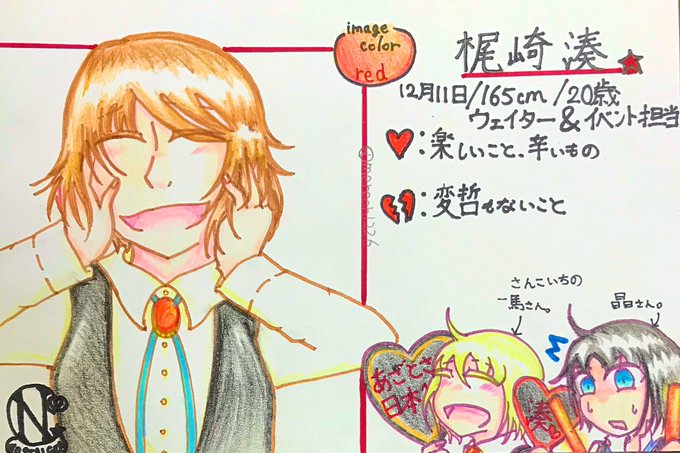 image
color
red
梶崎湊
12月11日/165cm/20歳
ウェイター&イベント担当
:楽しいこと、辛いもの
:変哲もないこと
さんこいちの
一馬さん。
晶さん。
あざとさ
日本一
湊
N